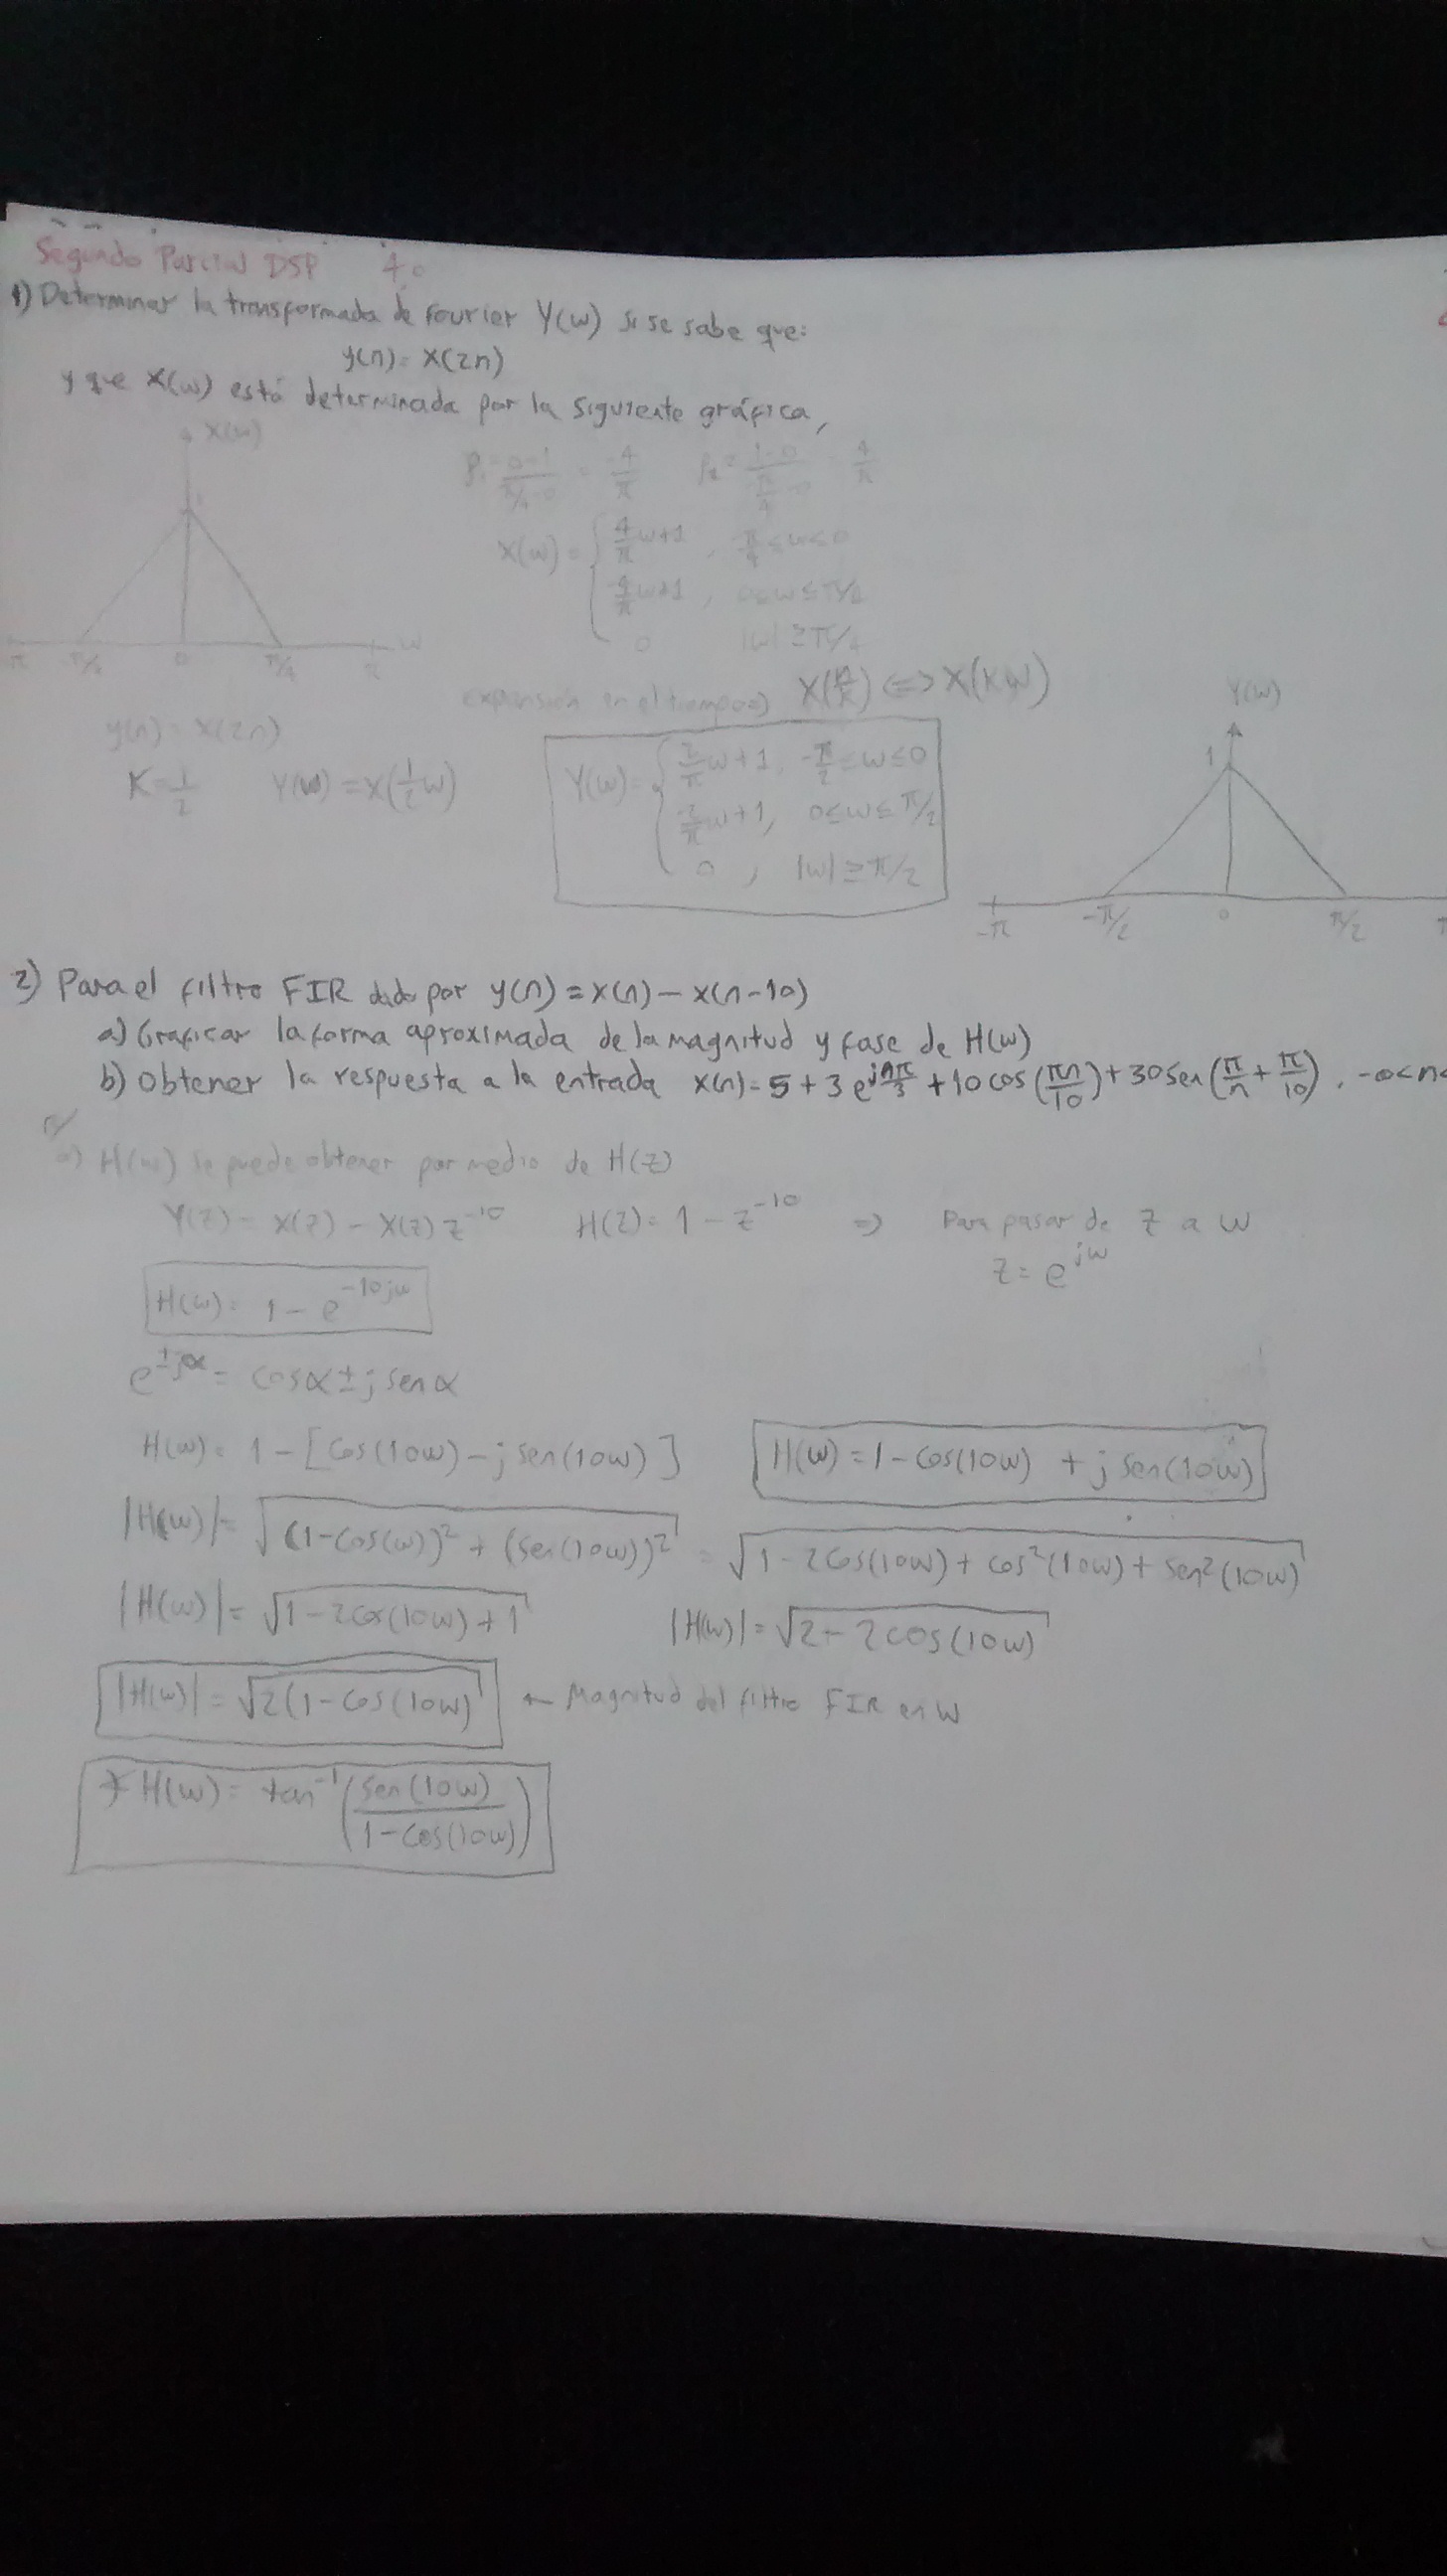 Segundo Parcial DSP 4.0
1) Determinar la transformada de Fourier Y(w) si se sabe que:
y(n) = X(2n)
y que X(w) está determinada por la siguiente gráfica,
X(w)
1
-π -π/4 0 π/4 π w
P₁ = 0-1 / π/4-0 = -4/π P₂ = 1-0 / π/4 = 4/π
X(w) = { 4/π w+1 , π/4 ≤ w ≤ 0
-4/π w+1 , 0 ≤ w ≤ π/2
0 |w| ≥ π/4
expansión en el tiempo => X(n/k) <=> X(kw)
y(n) = X(2n)
K = 1/2 Y(w) = X(1/2 w)
Y(w) = { 2/π w+1, -π/2 ≤ w ≤ 0
-2/π w+1, 0 ≤ w ≤ π/2
0 , |w| ≥ π/2
Y(w)
1
-π -π/2 0 π/2
2) Para el filtro FIR dado por y(n) = x(n) - x(n-10)
a) Graficar la forma aproximada de la magnitud y fase de H(w)
b) Obtener la respuesta a la entrada x(n) = 5 + 3e^{jnπ/3} + 10cos(πn/10) + 30sen(π/n + π/10), -∞<n<
a) H(w) se puede obtener por medio de H(z)
Y(z) = X(z) - X(z) z^{-10} H(z) = 1 - z^{-10} => Para pasar de z a w
z = e^{jw}
H(w) = 1 - e^{-10jw}
e^{±jα} = cosα ± j senα
H(w) = 1 - [cos(10w) - j sen(10w)] H(w) = 1 - cos(10w) + j sen(10w)
|H(w)| = √((1-cos(w))² + (sen(10w))²) = √(1 - 2cos(10w) + cos²(10w) + sen²(10w))
|H(w)| = √(1 - 2cos(10w) + 1) |H(w)| = √(2 - 2cos(10w))
|H(w)| = √(2(1-cos(10w)) ← Magnitud del filtro FIR en w
∡H(w) = tan⁻¹(sen(10w) / 1-cos(10w))